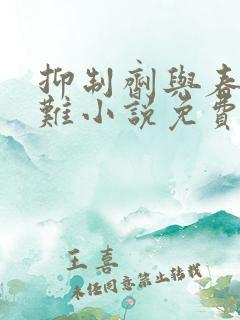 抑制劑與春
難小說免費
王喜
未任同意禁止转载